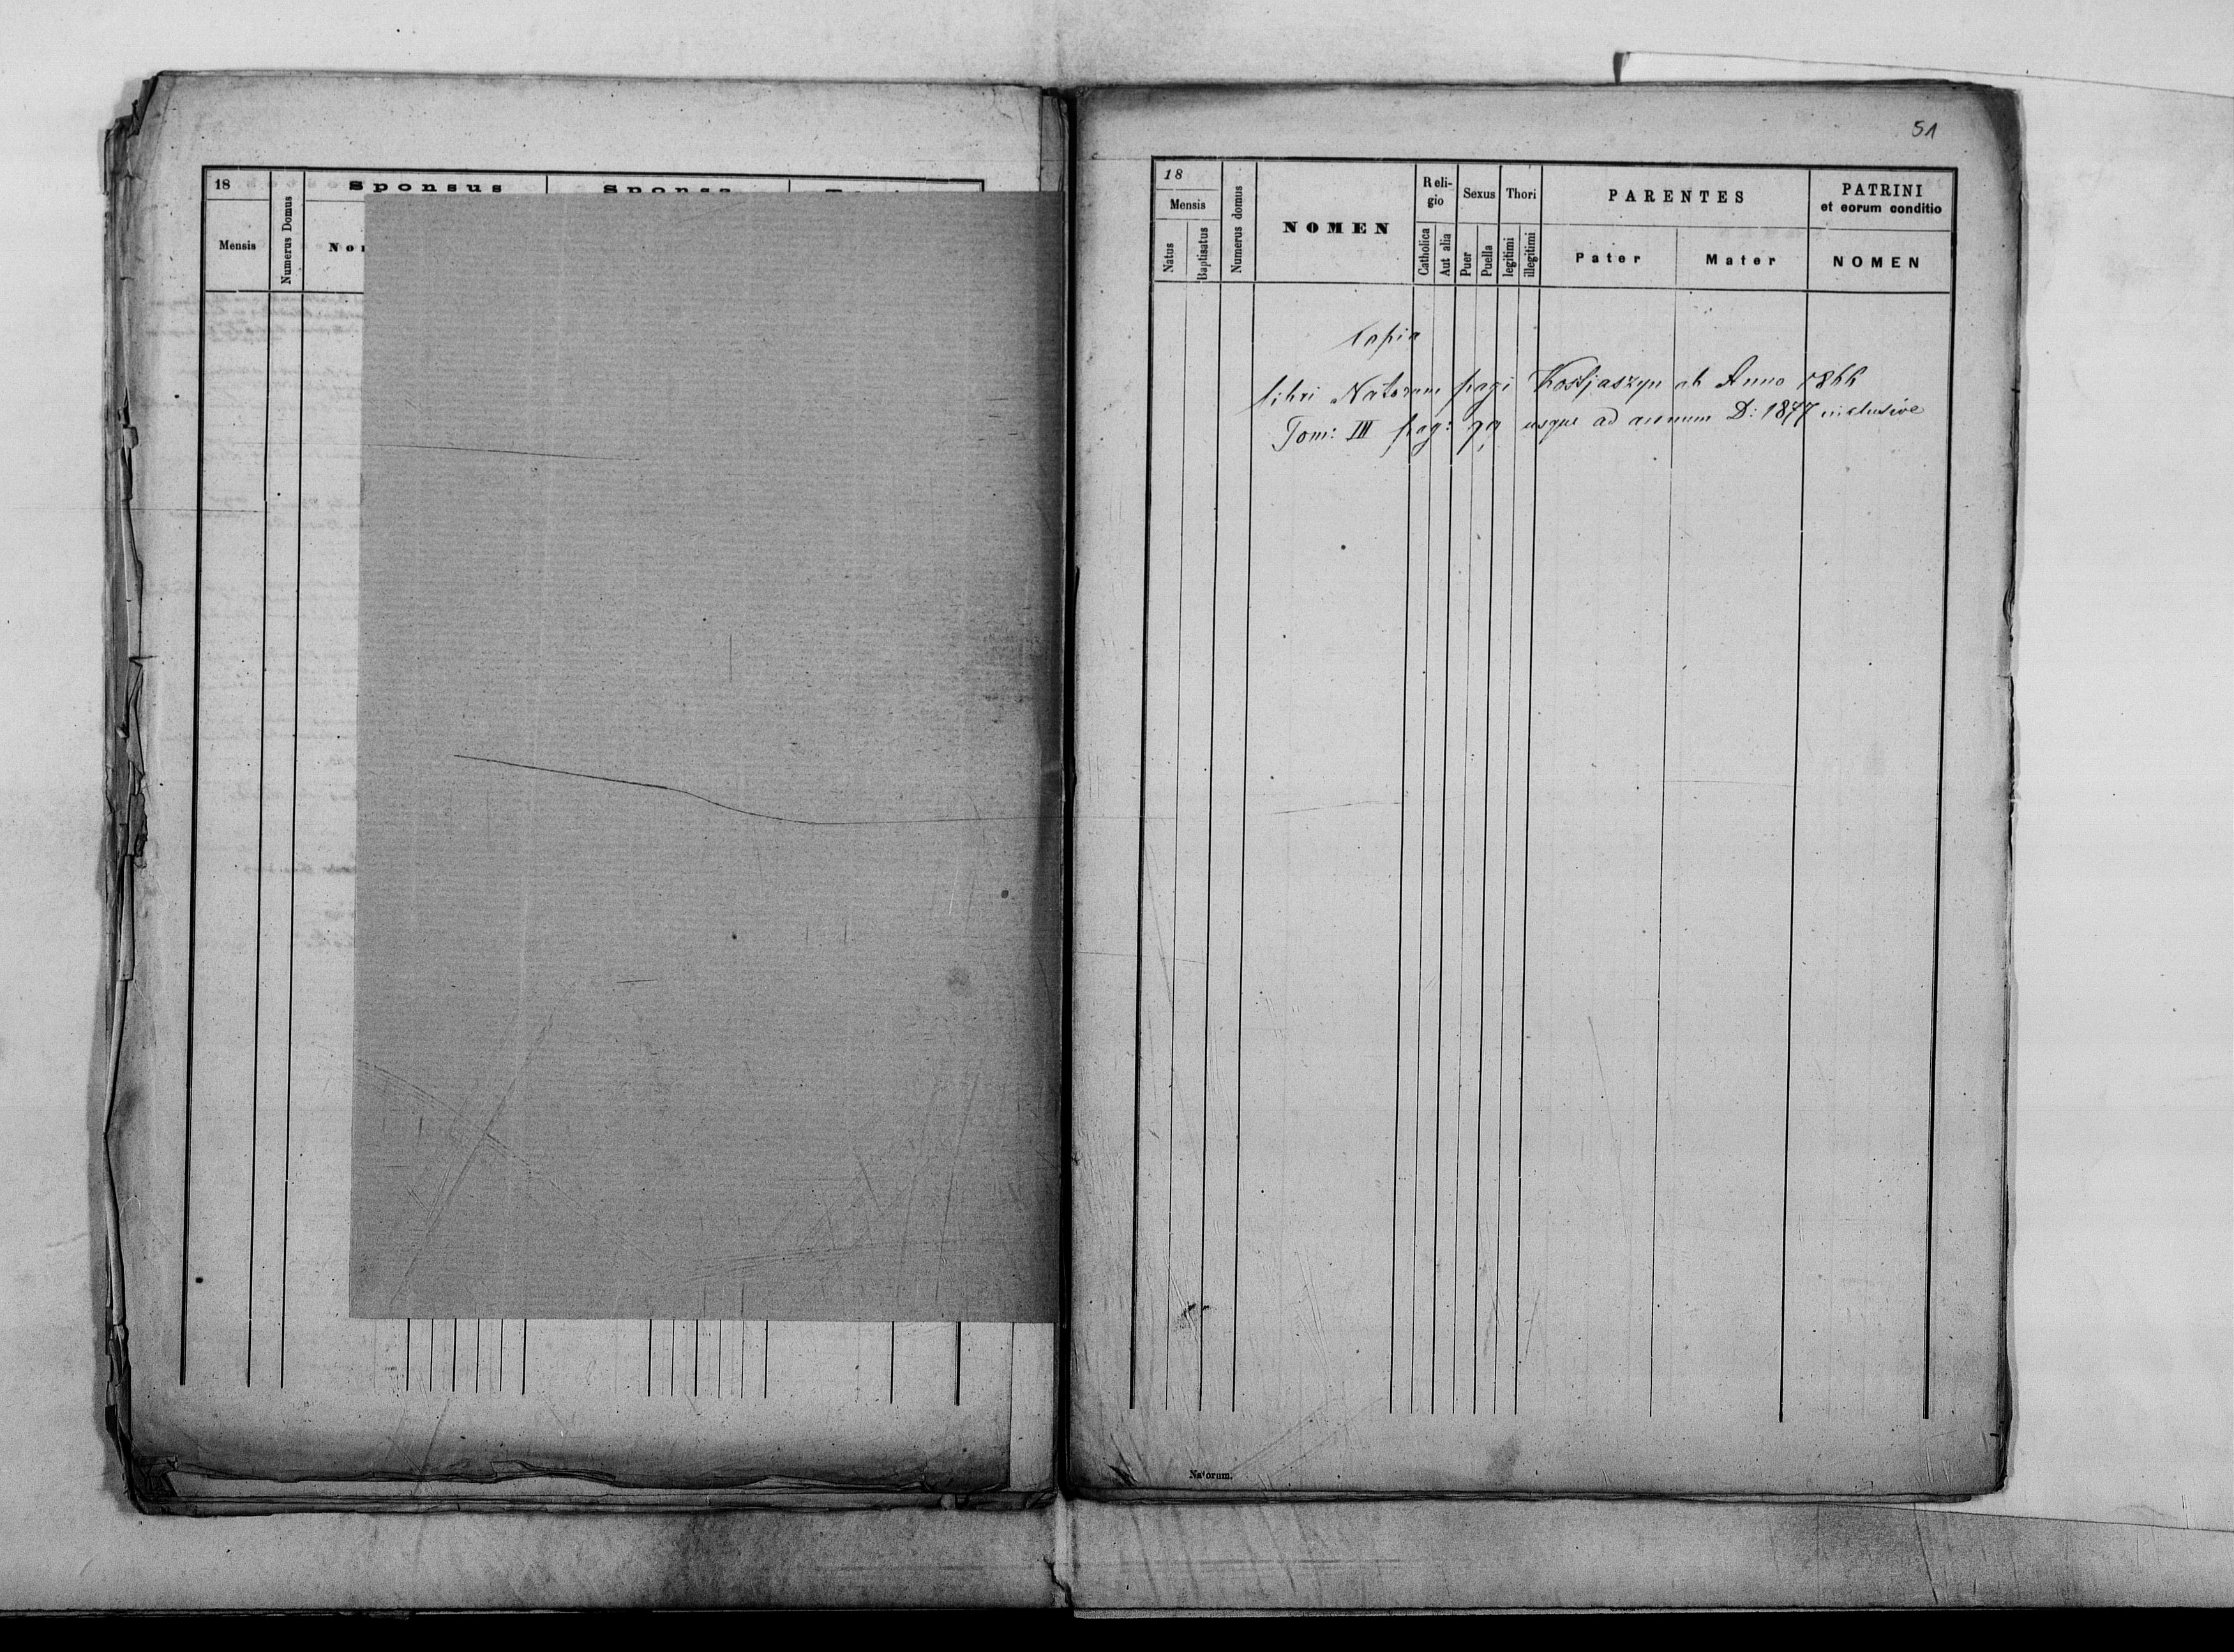 18
Sponsus
Mensis
Numerus Domus
51
18
Mensis
Natus
Baptisatus
Numerus domus
NOMEN
Reli-
gio
Catholica
Aut alia
Sexus
Puer
Puella
Thori
legitimi
illegitimi
PARENTES
Pater
Mater
PATRINI
et eorum conditio
NOMEN
Copia
libri Natorum pagi Kostjaszyn ab Anno 1866
Tom: III pag: usque ad annum D: 1877 inclusive
Natorum.